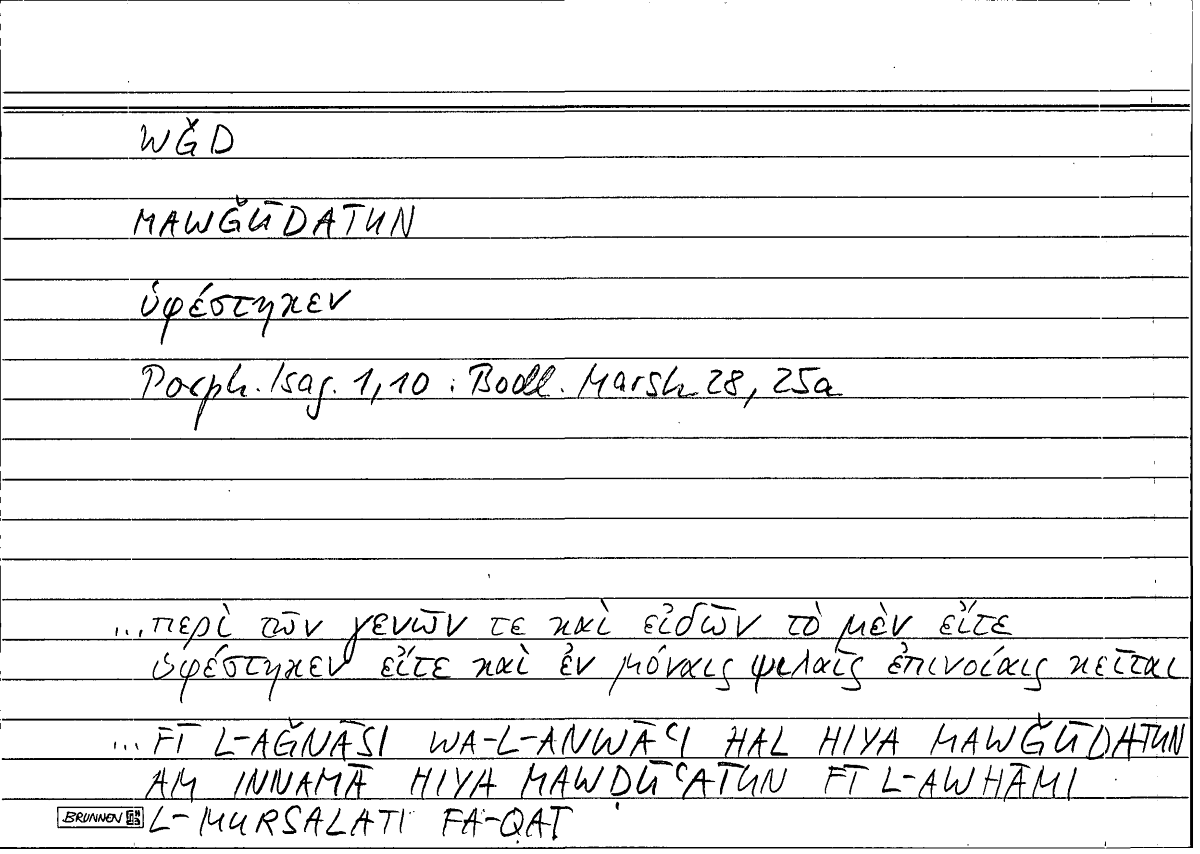 WǦD
MAWǦŪDATUN
ὑφέστηκεν
Porph. Isag. 1,10 : Bodl. Marsh 28, 25a
...περὶ τῶν γενῶν τε καὶ εἰδῶν τὸ μὲν εἴτε
ὑφέστηκεν εἴτε καὶ ἐν μόναις ψιλαῖς ἐπινοίαις κεῖται
...FĪ L-AǦNĀSI WA-L-ANWĀʿI HAL HIYA MAWǦŪDATUN
AM INNAMĀ HIYA MAWḌŪʿATUN FĪ L-AWHĀMI
BRUNNEN L-MURSALATI FA-QAṬ